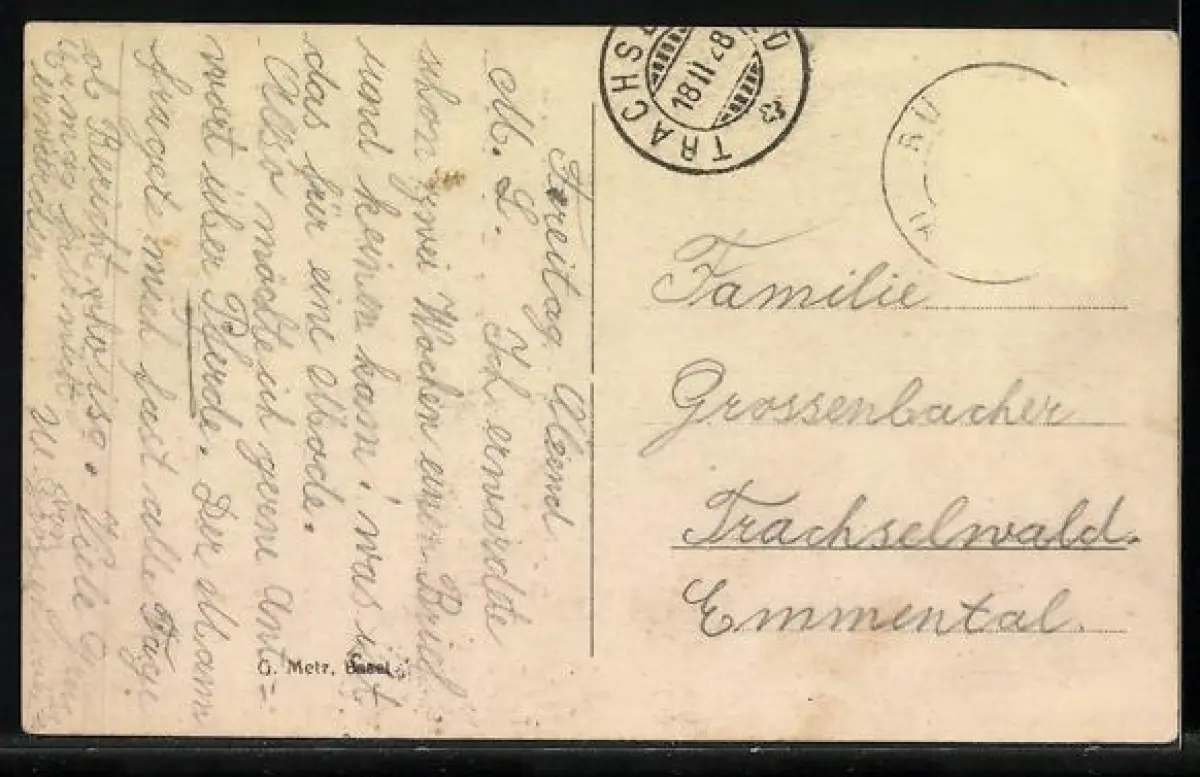 Freitag Abend
M. L. Ich erwardte
schon zwei Wochen einen Brief
und keiner kam, was ist
das für eine Mode.
Also möchte ich gerne Ant=
wort über Pferde. Der Mann
fraget mich fast alle Tage
ob Bericht
Viele
TRACHS LD
18 II 28
RU
Familie
Grossenbacher
Trachselwald.
Emmental.
G. Metz, Basel